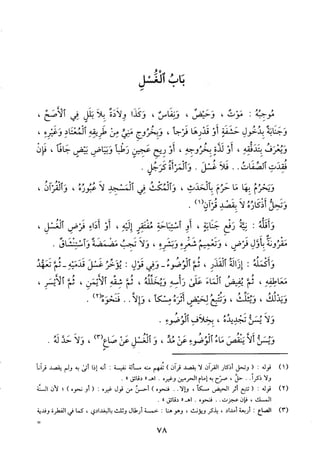 بَابُ الْغُسْلِ
مُوجِبُهُ : مَوْتٌ ، وَحَيْضٌ ، وَنِفَاسٌ ، وَكَذَا وِلَادَةٌ بِلَا بَلَلٍ فِي الْأَصَحِّ ،
وَجَنَابَةٌ بِدُخُولِ حَشَفَةٍ أَوْ قَدْرِهَا فَرْجاً ، وَبِخُرُوجِ مَنِيٍّ مِنْ طَرِيقِهِ الْمُعْتَادِ وَغَيْرِهِ ،
وَيُعْرَفُ بِتَدَفُّقِهِ ، أَوْ لَذَّةٍ بِخُرُوجِهِ ، أَوْ رِيحِ عَجِينٍ رَطْباً وَبَيَاضِ بَيْضٍ جَافّاً ، فَإِنْ
فُقِدَتِ الصِّفَاتُ.. فَلَا غُسْلَ . وَالْمَرْأَةُ كَرَجُلٍ .
وَيَحْرُمُ بِهَا مَا حَرُمَ بِالْحَدَثِ ، وَالْمُكْثُ فِي الْمَسْجِدِ لَا عُبُورُهُ ، وَالْقُرْآنُ ،
وَتَحِلُّ أَذْكَارُهُ لَا بِقَصْدِ قُرْآنٍ(١) .
وَأَقَلُّهُ : نِيَّةُ رَفْعِ جَنَابَةٍ ، أَوِ اسْتِبَاحَةِ مُفْتَقِرٍ إِلَيْهِ ، أَوْ أَدَاءِ فَرْضِ الْغُسْلِ ،
مَقْرُونَةً بِأَوَّلِ فَرْضٍ ، وَتَعْمِيمُ شَعْرِهِ وَبَشَرِهِ ، وَلَا تَجِبُ مَضْمَضَةٌ وَاسْتِنْشَاقٌ .
وَأَكْمَلُهُ : إِزَالَةُ الْقَذَرِ ، ثُمَّ الْوُضُوءُ ـ وَفِي قَوْلٍ : يُؤَخِّرُ غَسْلَ قَدَمَيْهِ ـ ثُمَّ تَعَهُّدُ
مَعَاطِفِهِ ، ثُمَّ يُفِيضُ الْمَاءَ عَلَىٰ رَأْسِهِ وَيُخَلِّلُهُ ، ثُمَّ شِقِّهِ الْأَيْمَنِ ، ثُمَّ الْأَيْسَرِ ،
وَيَدْلُكُ ، وَيُثَلِّثُ ، وَتُتْبِعُ لِحَيْضٍ أَثَرَهُ مِسْكاً ، وَإِلَّا.. فَنَحْوَهُ(٢) .
وَلَا يُسَنُّ تَجْدِيدُهُ ، بِخِلَافِ الْوُضُوءِ .
وَيُسَنُّ أَلَّا يَنْقُصَ مَاءُ الْوُضُوءِ عَنْ مُدٍّ ، وَالْغُسْلِ عَنْ صَاعٍ(٣) ، وَلَا حَدَّ لَهُ .
(١) قوله : ( وتحل أذكار القرآن لا بقصد قرآن ) تُفهم منه مسألة نفيسة : أنه إذا أتىٰ به ولم يقصد قرآناً
ولا ذكراً.. حلَّ ، صرح به إمام الحرمين وغيره . اهـ « دقائق » .
(٢) قوله : ( تتبع أثر الحيض مسكاً ، وإلا.. فنحوه ) أحسن من قول غيره : ( أو نحوه ) ؛ لأن السنة
المسك ، فإن عجزت.. فنحوه . اهـ « دقائق » .
(٣) الصاع : أربعة أمداد ، يذكر ويؤنث ، وهو هنا : خمسة أرطال وثلث بالبغدادي ، كما في الفطرة وفدية
٧٨